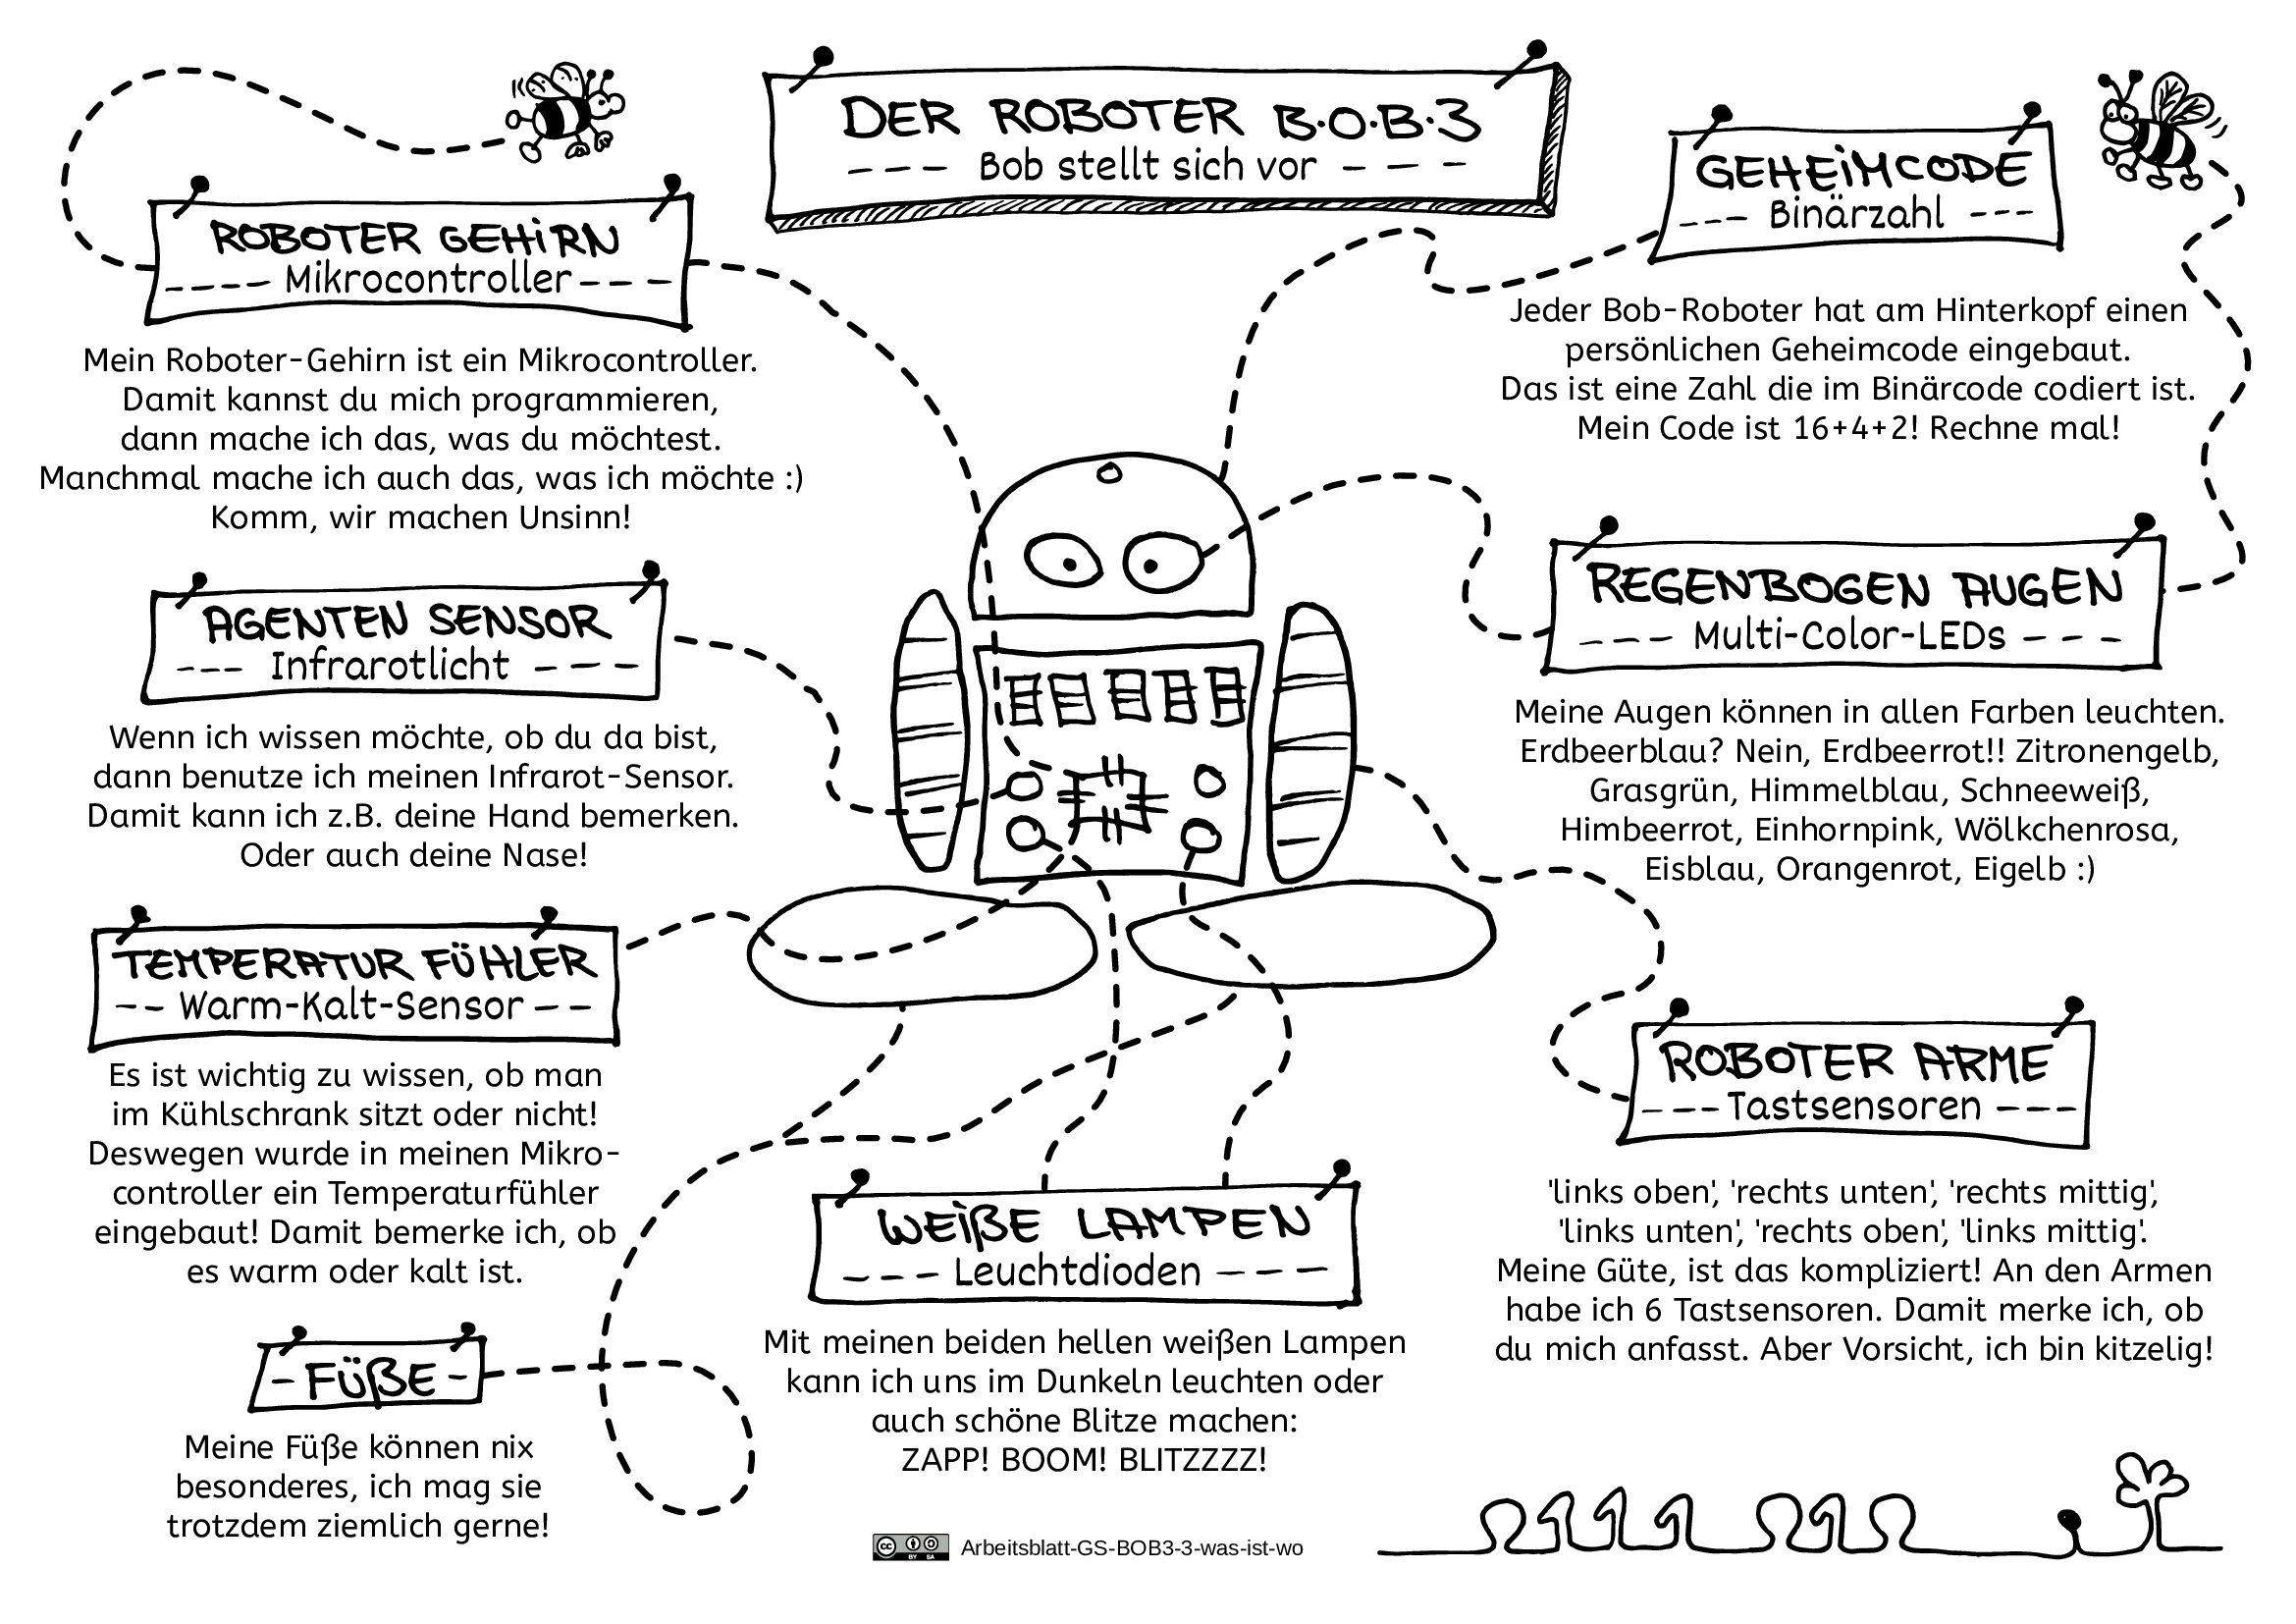 DER ROBOTER B·O·B·3
--- Bob stellt sich vor ---
ROBOTER GEHiRN
---- Mikrocontroller ---
Mein Roboter-Gehirn ist ein Mikrocontroller.
Damit kannst du mich programmieren,
dann mache ich das, was du möchtest.
Manchmal mache ich auch das, was ich möchte :)
Komm, wir machen Unsinn!
AGENTEN SENSOR
--- Infrarotlicht ---
Wenn ich wissen möchte, ob du da bist,
dann benutze ich meinen Infrarot-Sensor.
Damit kann ich z.B. deine Hand bemerken.
Oder auch deine Nase!
TEMPERATUR FÜHLER
-- Warm-Kalt-Sensor --
Es ist wichtig zu wissen, ob man
im Kühlschrank sitzt oder nicht!
Deswegen wurde in meinen Mikro-
controller ein Temperaturfühler
eingebaut! Damit bemerke ich, ob
es warm oder kalt ist.
- FÜßE -
Meine Füße können nix
besonderes, ich mag sie
trotzdem ziemlich gerne!
WEißE LAMPEN
--- Leuchtdioden ----
Mit meinen beiden hellen weißen Lampen
kann ich uns im Dunkeln leuchten oder
auch schöne Blitze machen:
ZAPP! BOOM! BLITZZZZ!
GEHEiMCODE
--- Binärzahl ---
Jeder Bob-Roboter hat am Hinterkopf einen
persönlichen Geheimcode eingebaut.
Das ist eine Zahl die im Binärcode codiert ist.
Mein Code ist 16+4+2! Rechne mal!
REGENBOGEN AUGEN
--- Multi-Color-LEDs ---
Meine Augen können in allen Farben leuchten.
Erdbeerblau? Nein, Erdbeerrot!! Zitronengelb,
Grasgrün, Himmelblau, Schneeweiß,
Himbeerrot, Einhornpink, Wölkchenrosa,
Eisblau, Orangenrot, Eigelb :)
ROBOTER ARME
--- Tastsensoren ---
'links oben', 'rechts unten', 'rechts mittig',
'links unten', 'rechts oben', 'links mittig'.
Meine Güte, ist das kompliziert! An den Armen
habe ich 6 Tastsensoren. Damit merke ich, ob
du mich anfasst. Aber Vorsicht, ich bin kitzelig!
cc BY SA Arbeitsblatt-GS-BOB3-3-was-ist-wo
0111010